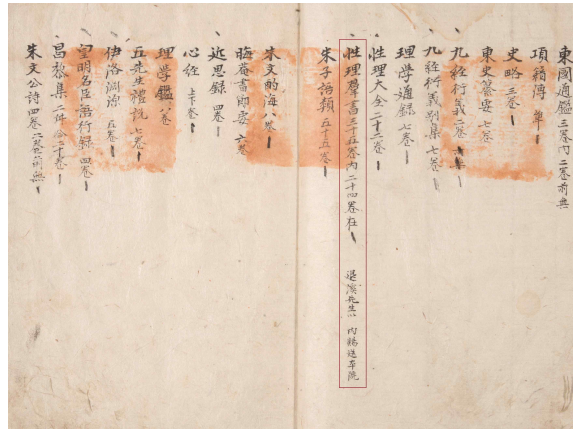 東國通鑑 三卷內二卷前無
項籍傳 單
史略 三卷
東史纂要 七卷
九經衍義 二卷
九經衍義別集 七卷
理學通錄 七卷
性理大全 二十二卷
性理群書 三十五卷內二十四卷在 退溪先生以 內賜送本院
朱子語類 五十五卷
朱文酌海 八卷
晦菴書節要 六卷
近思錄 四卷
心經 上下卷
理學鑑 卷
五先生禮說 七卷
伊洛淵源 五卷
皇明名臣言行錄 四卷
昌黎集 二件合二十卷
朱文公詩 四卷二卷前無